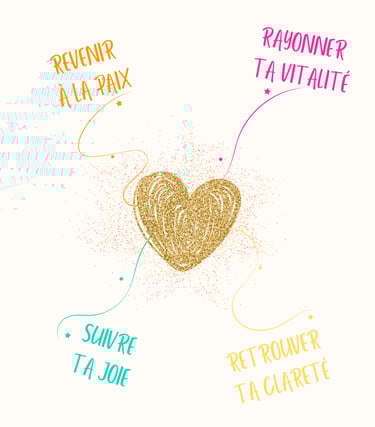 REVENIR
À LA PAIX
RAYONNER
TA VITALITÉ
SUIVRE
TA JOIE
RETROUVER
TA CLARETÉ